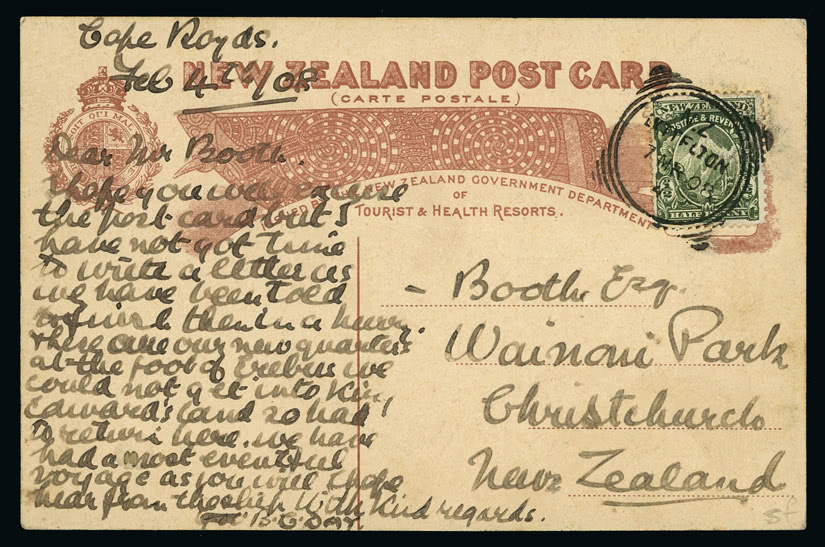 Cape Royds.
Feb 4th/08
NEW ZEALAND POST CARD
(CARTE POSTALE)
NEW ZEALAND GOVERNMENT DEPARTMENT
OF
TOURIST & HEALTH RESORTS.
NEW ZEALAND
POSTAGE & REVENUE
HALF PENNY
LYTTELTON
7 MR 08
Dear Mr Booth.
I hope you will excuse
the post card but I
have not got time
to write a letter as
we have been told
to finish them in a hurry
these are our new quarters
at the foot of Erebus we
could not get into King
Edwards land so had
to return here. we have
had a most eventful
voyage as you will I hope
hear from the ship With kind regards.
B.C. DAY
- Booth Esq.
Wainoni Park
Christchurch
New Zealand